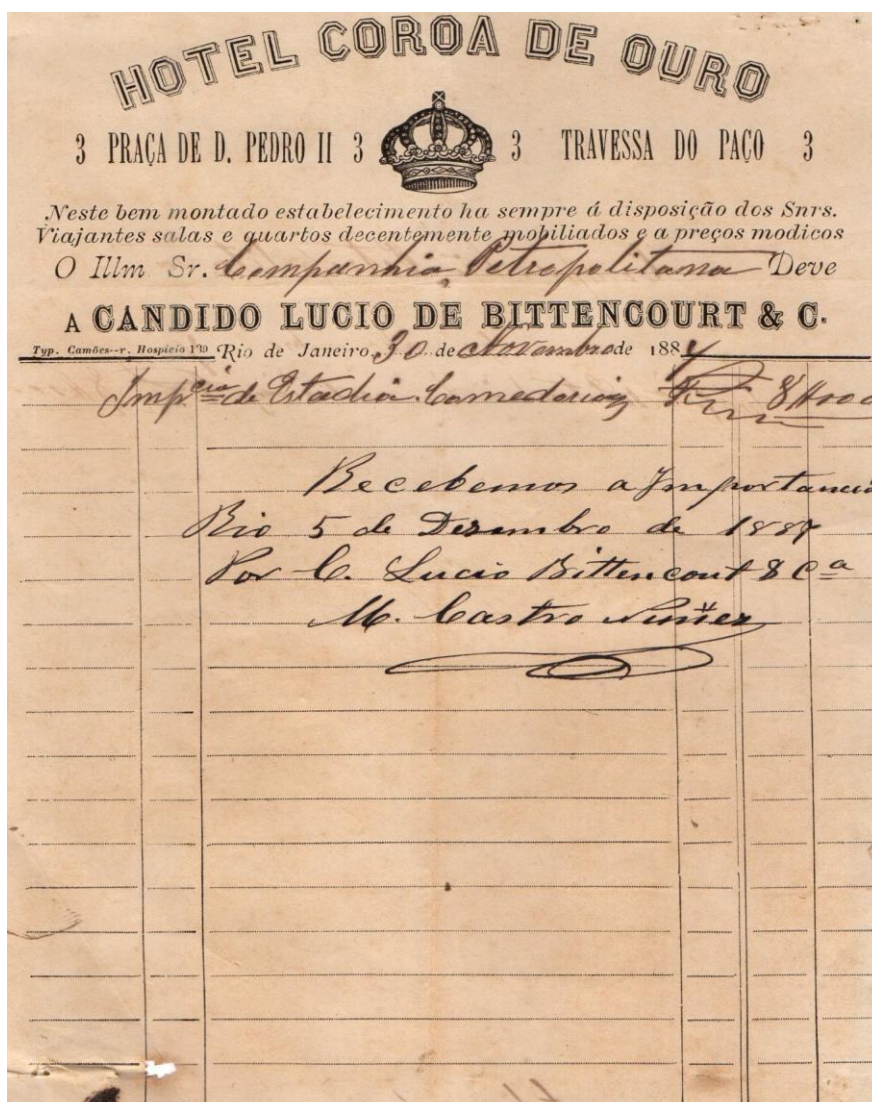 HOTEL COROA DE OURO
3 PRAÇA DE D. PEDRO II 3 3 TRAVESSA DO PAÇO 3
Neste bem montado estabelecimento ha sempre á disposição dos Snrs.
Viajantes salas e quartos decentemente mobiliados e a preços modicos
O Illm Sr. Companhia Petropolitana Deve
A CANDIDO LUCIO DE BITTENCOURT & C.
Typ. Camões--r. Hospicio Rio de Janeiro, 30 de Novembro de 188
Imp.cia de Estadia
Recebemos a Importancia
Rio 5 de Desembro de
Por C. Lucio Bittencout & Ca
M. Castro Nuñez